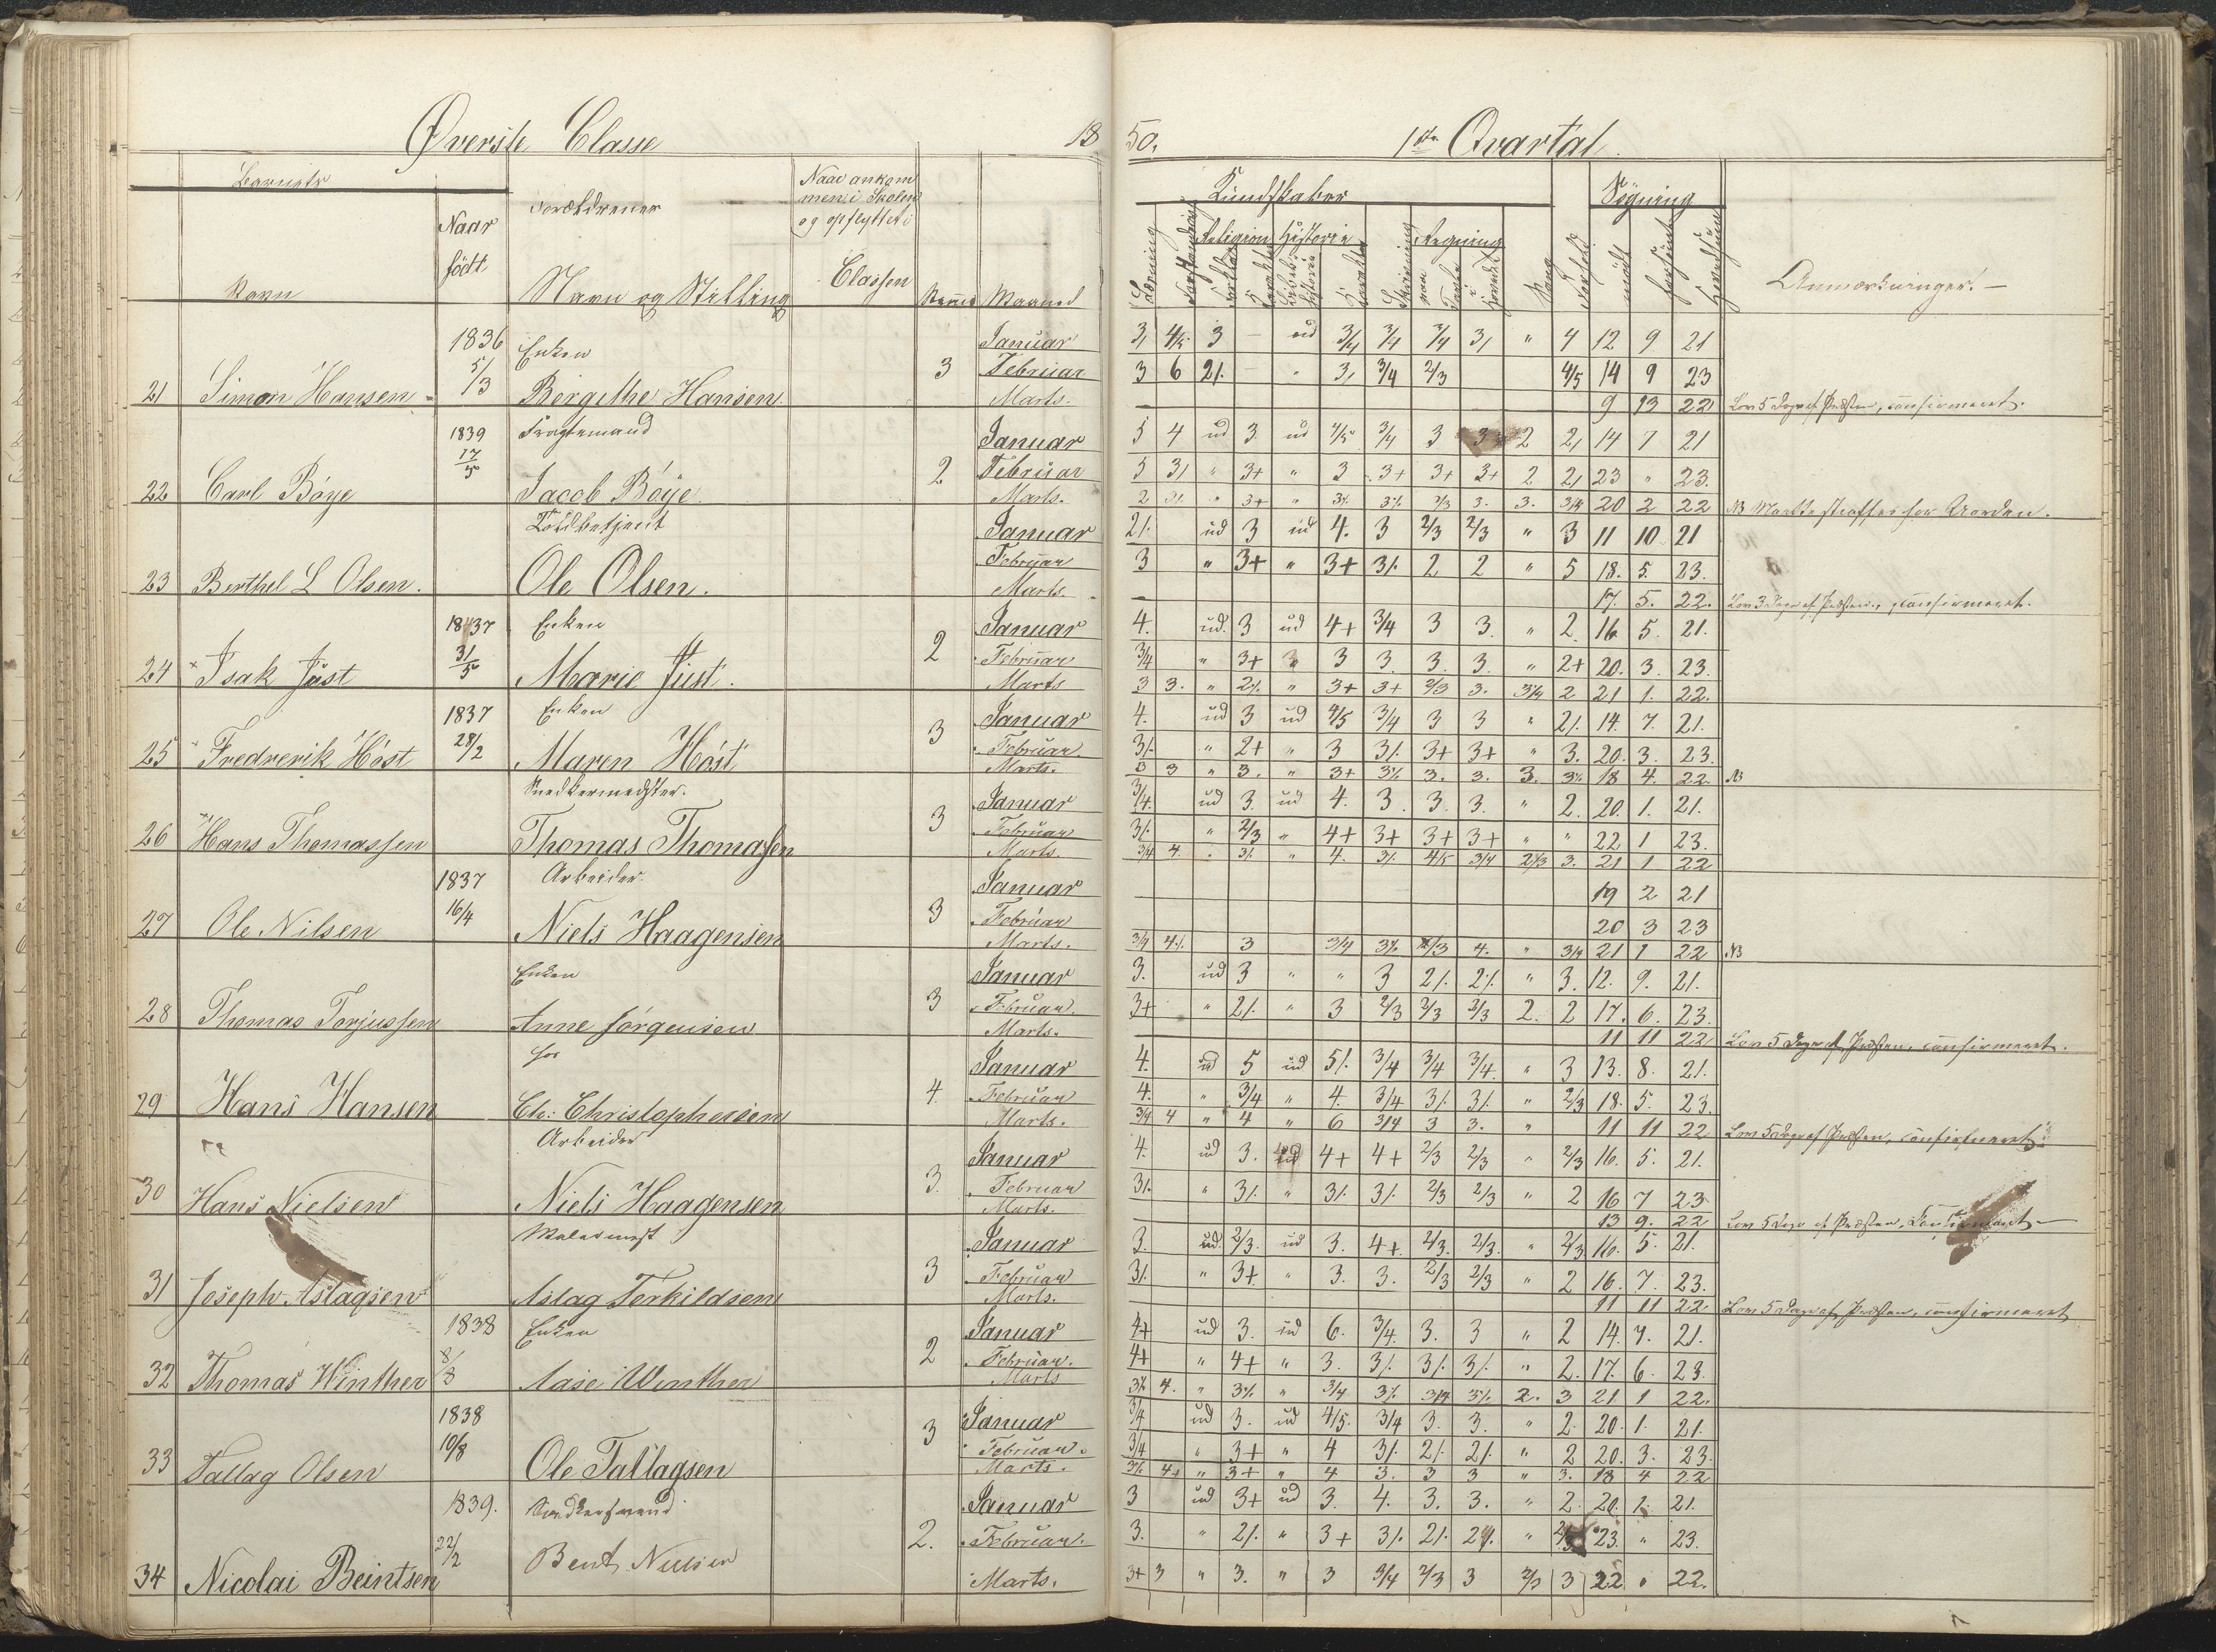 Øverste Classe 18
Barnets
Navn
Naar
födt
Forældrenes
Navn og Stilling
Naar ankom
men i Skolen
og opflyttet i
Classen
Maaned
1836 Enken Januar
5/3 3 Februar
21 Simon Hansen Birgithe Hansen Marts.
1839 Fragtemand Januar
17/5 2 Februar
22 Carl Böye Jacob Böye Marts.
Toldbetjent Januar
Februar
23 Berthel L Olsen. Ole Olsen. Marts.
1837 Enken Januar
31/5 2 Februar
24 Isak Just Marie Just. Marts
1837 Enken Januar
28/2 3 Februar
25 Fredrerik Höst Maren Höst Marts.
Snedkermester. Januar
3 Februar
26 Hans Thomassen Thomas Thomassen Marts.
1837 Arbeider Januar
16/4 3 Februar
27 Ole Nilsen Niels Haagensen Marts.
Enken Januar
3 Februar.
28 Thomas Torjussen Anne Jörgensen Marts.
for Januar
4 Februar
29 Hans Hansen Ch: Christophersen Marts.
Arbeider Januar
3. Februar
30 Hans Nielsen Niels Haagensen Marts.
Januar
3 Februar
31 Joseph Aslagsen Aslag Terkildsen Marts.
1838 Enken Januar
8/3 2 Februar.
32 Thomas Winther Aase Winther Marts
1838 Januar
10/8 3 Februar.
33 Tallag Olsen Ole Tallagsen Marts.
1839. Januar
22/2 2. Februar.
34 Nicolai Beintsen Bent Nielsen Marts.
50. 1ste Qvartal.
Kundskaber Sögning
Religion Historie Regning
Anmærkninger. —
3/ 4/5 3 — ud 3/4 3/4 3/4 3/ " 4 12 9 21
3 6 2/. — " 3/ 3/4 2/3 4/5 14 9 23
9 13 22 Lov 5 Dage af Præsten, confirmeret.
5 4 ud 3 ud 4/5 3/4 3 3 2 2/ 14 7 21
5 3/ " 3+ " 3 3+ 3+ 3+ 2 2/ 23 " 23.
20 2 22
2/. ud 3 ud 4. 3 2/3 2/3 " 3 11 10 21
3 " 3+ " 3+ 3/. 2 2 " 5 18. 5. 23.
17. 5. 22. Lov 3 Dage af Præsten, confirmeret.
4. ud. 3 ud 4+ 3/4 3 3. " 2. 16 5. 21.
3/4 " 3+ " 3 3. 3. 3. " 2+ 20. 3. 23.
3 3. " 2/. " 3+ 3+ 2/3 3. 3/4 2 21 1. 22.
4. ud 3 ud 4/5 3/4 3 3 " 2/. 14. 7. 21.
3/. " 2+ " 3 3/. 3+ 3+ " 3. 20. 3. 23.
3 3 " 3. " 3+ 3/. 3. 3. 3. 3/. 18 4. 22. NB
3/4. ud 3. ud 4. 3. 3. 3. " 2. 20. 1. 21.
3/. " 2/3 " 4+ 3+ 3+ 3+ " " 22 1 23.
3/4 4. " 3/. " 4. 3/. 4/5 3/4 2/3 3. 21 1 22
19 2 21
20 3 23
3/4 4/. 3 3/4 3/. 2/3 4. " 3/4 21 1 22 NB
3. ud 3 " " 3 2/. 2/. " 3. 12. 9. 21.
3+ " 2/. " 3 2/3 2/3 2/3 2. 2 17. 6. 23.
11 11 22 Lov 5 Dage af Præsten, confirmeret.
4. ud 5 ud 5/. 3/4 3/4 3/4. " 3 13. 8. 21.
4. " 3/4 " 4. 3/4 3/. 3/. " 2/3 18. 5. 23.
3/4 4 " 4 " 6 3/4 3 3. " 11 11 22 Lov 5 Dage af Præsten, confirmeret.
4. ud 3. ud 4+ 4+ 2/3 2/3 " 2/3 16. 5. 21.
3/. " 3/. " 3/. 3/. 2/3 2/3 " 2 16 7 23
13 9. 22 Lov 5 Dage af Præsten, Confirmeret —
3. ud. 2/3. ud 3. 4+. 2/3. 2/3. " 2/3. 16. 5. 21.
3/. " 3+. " 3. 3. 2/3 2/3 " 2 16. 7. 23.
11 11 22. Lov 5 Dage af Præsten, confirmeret
4+ ud 3. ud 6. 3/4. 3. 3 " 2 14. 7. 21.
4+ " 4+ " 3. 3/. 3/. 3/. " 2. 17. 6. 23.
3/. 4. " 3/. " 3/4 3/. 3/4 3/. 2. 3 21 1 22.
3/4 ud 3. ud 4/5. 3/4 3. 3. " 2. 20. 1. 21.
3/4 " 3+ " 4 3/. 2/. 2/. " 2 20. 3. 23.
3/. 4+ " 3+ " 4 3. 3 3 " 3. 18 4 22
3 ud 3+ ud 3. 4. 3. 3. " 2. 20. 1. 21.
3. " 2/. " 3+ 3/. 2/. 2/. " 23. " 23.
3+ 3 " 3. " 3 3/4 2/3 3 2/3 3 22 " 22.